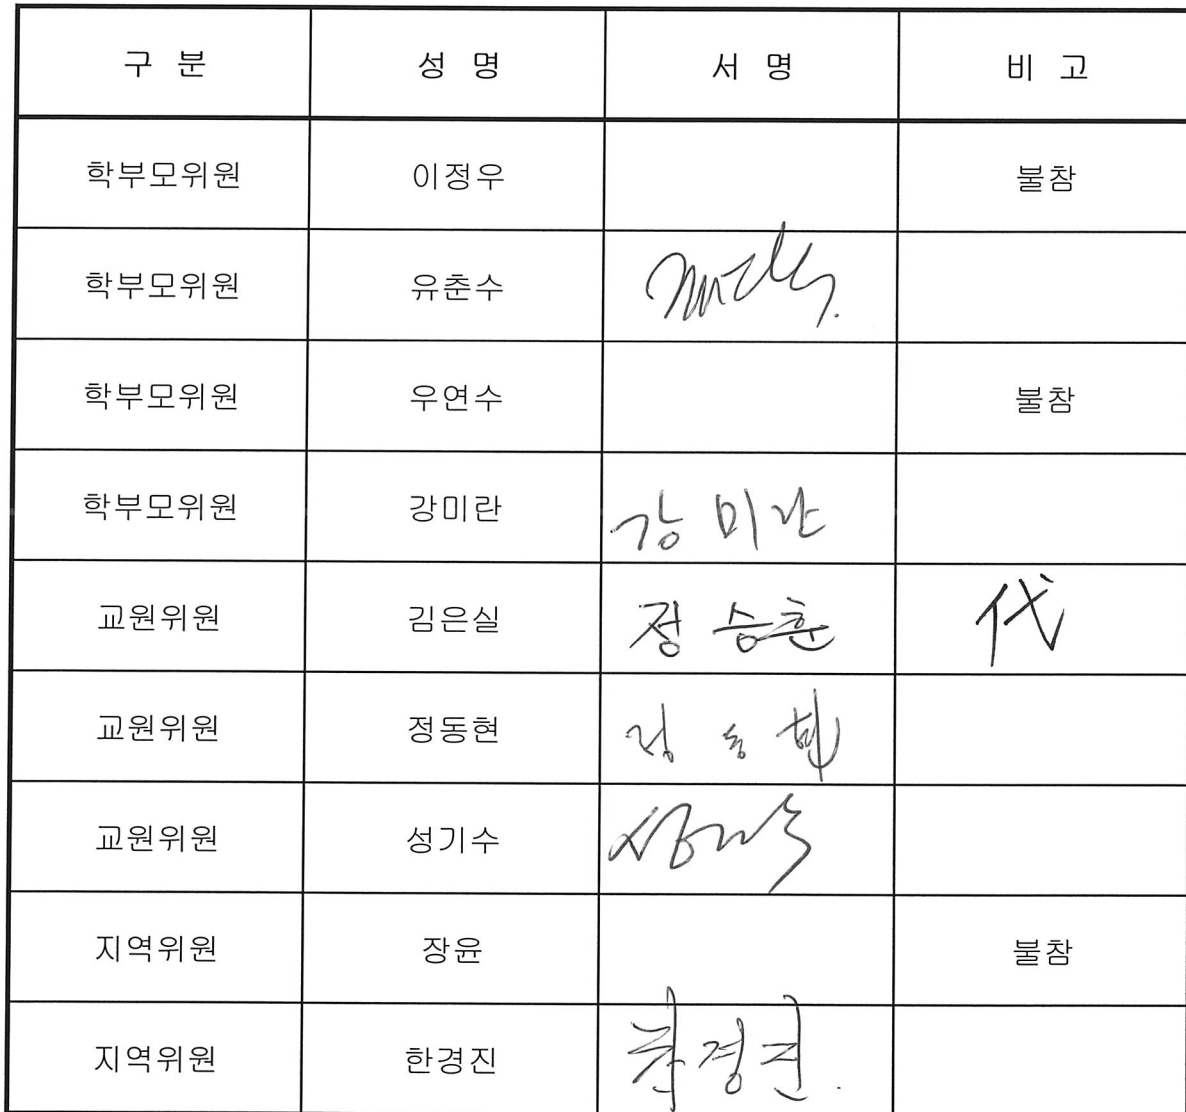 구 분 성 명 서 명 비 고
학부모위원 이정우 불참
학부모위원 유춘수
학부모위원 우연수 불참
학부모위원 강미란 강미란
교원위원 김은실 정승훈 代
교원위원 정동현 정동현
교원위원 성기수
지역위원 장윤 불참
지역위원 한경진 한경진